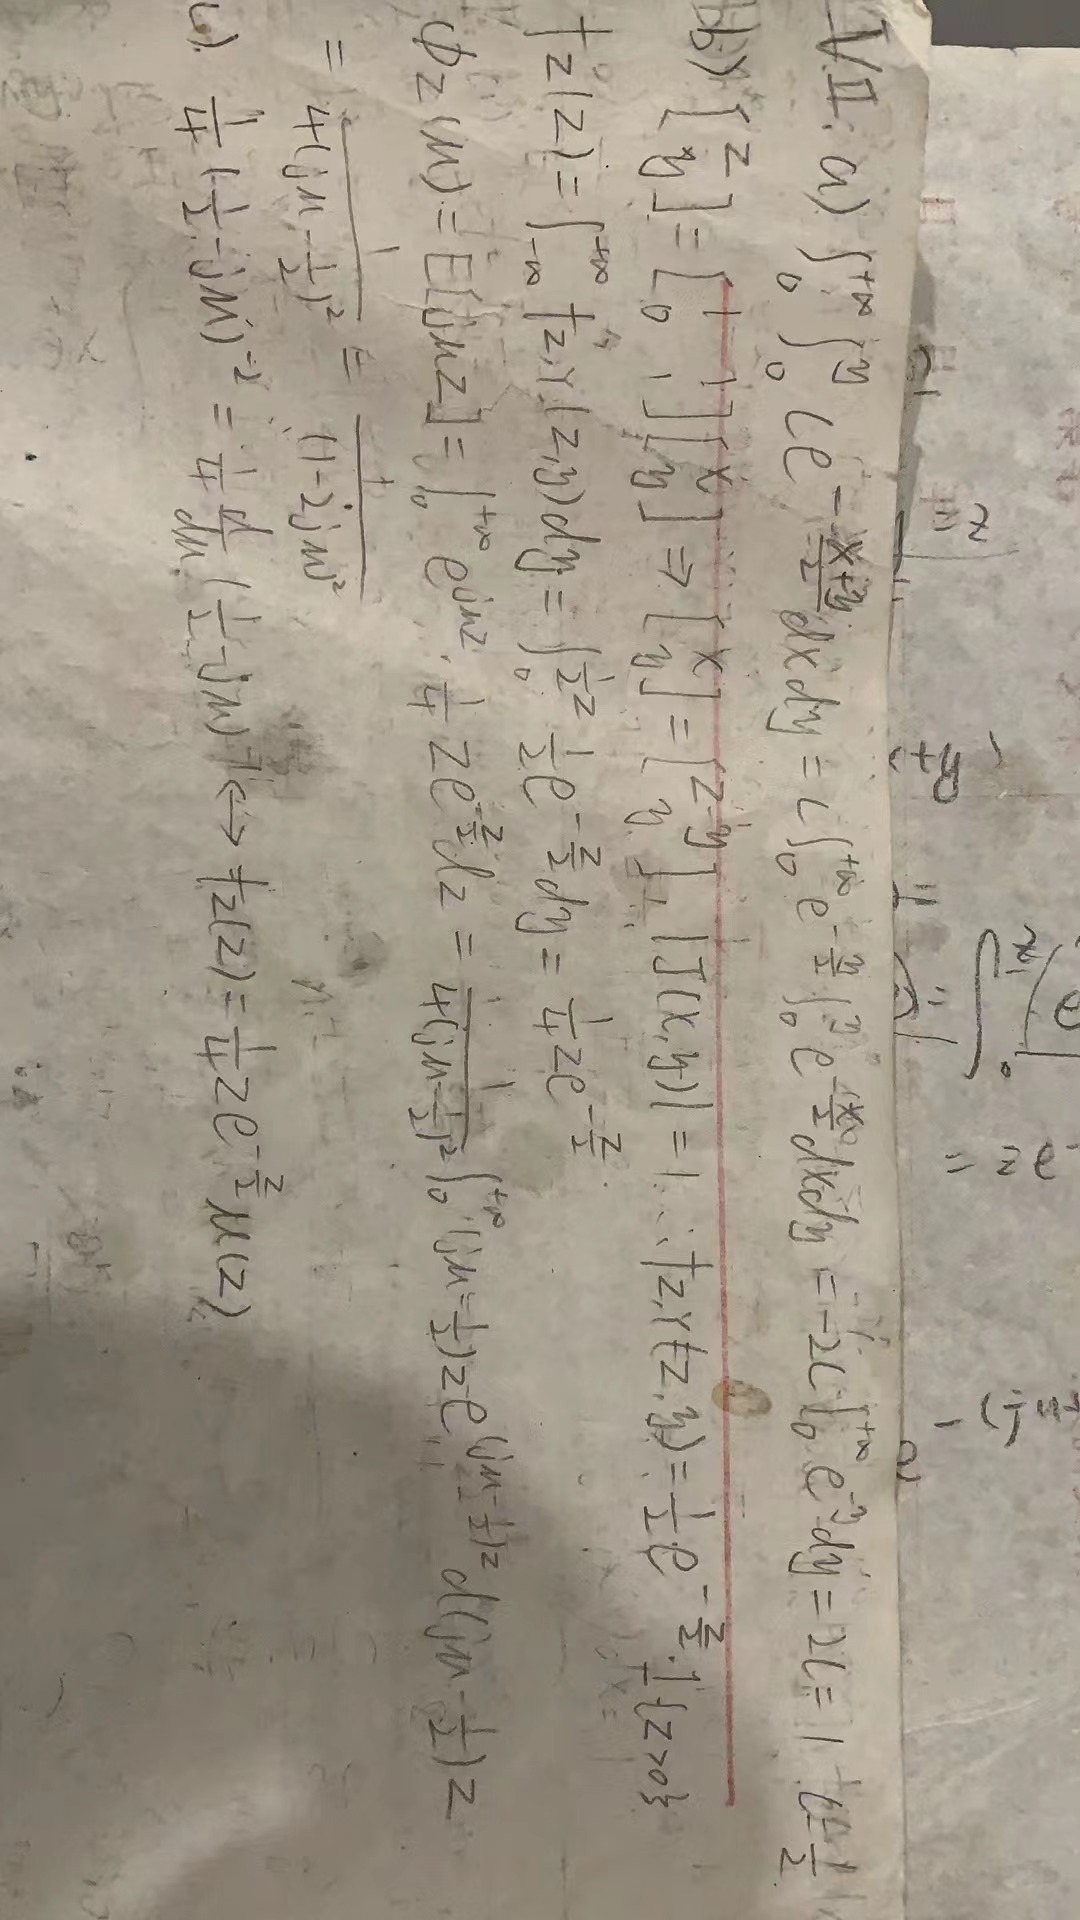 VII. a) ∫_0^{+∞} ∫_0^y Ce^{-\frac{x+y}{2}} dxdy = C∫_0^{+∞} e^{-\frac{y}{2}} ∫_0^y e^{-\frac{x}{2}} dxdy = -2C∫_0^{+∞} e^{-y} dy = 2C = 1 C = \frac{1}{2}
b) [z y] = [1 1 0 1][x y] ⇒ [x y] = [z-y y], |J(x,y)| = 1 ∴ f_{Z,Y}(z,y) = \frac{1}{2} e^{-\frac{z}{2}} · 1{z>0}
f_Z(z) = ∫_{-∞}^{+∞} f_{Z,Y}(z,y)dy = ∫_0^{\frac{1}{2}z} \frac{1}{2} e^{-\frac{z}{2}} dy = \frac{1}{4} z e^{-\frac{z}{2}}
ϕ_Z(u) = E[juz] = ∫_0^{+∞} e^{juz} · \frac{1}{4} z e^{-\frac{z}{2}} dz = \frac{1}{4(ju-\frac{1}{2})^2} ∫_0^{+∞} (ju-\frac{1}{2})z e^{(ju-\frac{1}{2})z} d(ju-\frac{1}{2})z
= \frac{1}{4(ju-\frac{1}{2})^2} = \frac{1}{(1-2ju)^2}
c). \frac{1}{4} (\frac{1}{2}-ju)^{-2} = \frac{1}{4} \frac{d}{du} (\frac{1}{2}-ju)^{-1} ↔ f_Z(z) = \frac{1}{4} z e^{-\frac{z}{2}} u(z)